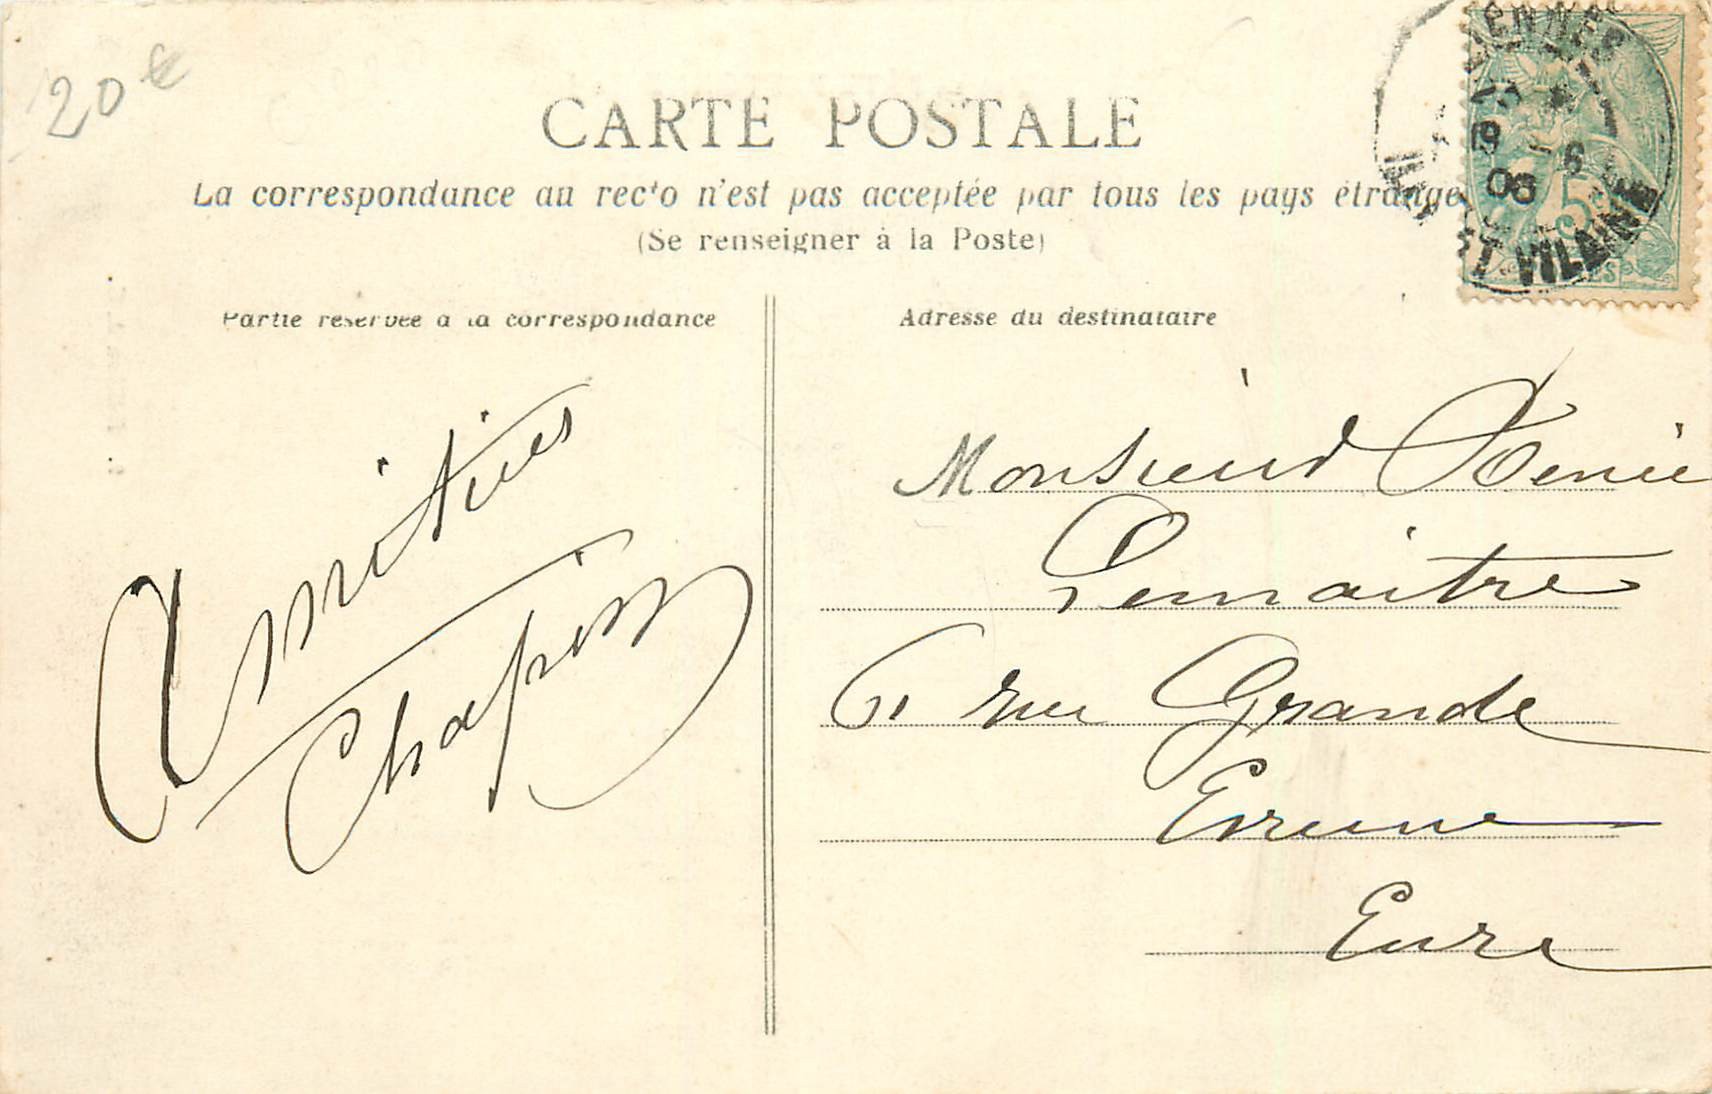 20€
CARTE POSTALE
La correspondance au recto n'est pas acceptée par tous les pays étrange
(Se renseigner à la Poste)
Partie réservée à la correspondance
Adresse du destinataire
RENNES
19 - 6
06
ILLE-ET-VILAINE
5
Amitiés
Chapin
Monsieur
Lemaitre
61 rue Grande
Eure